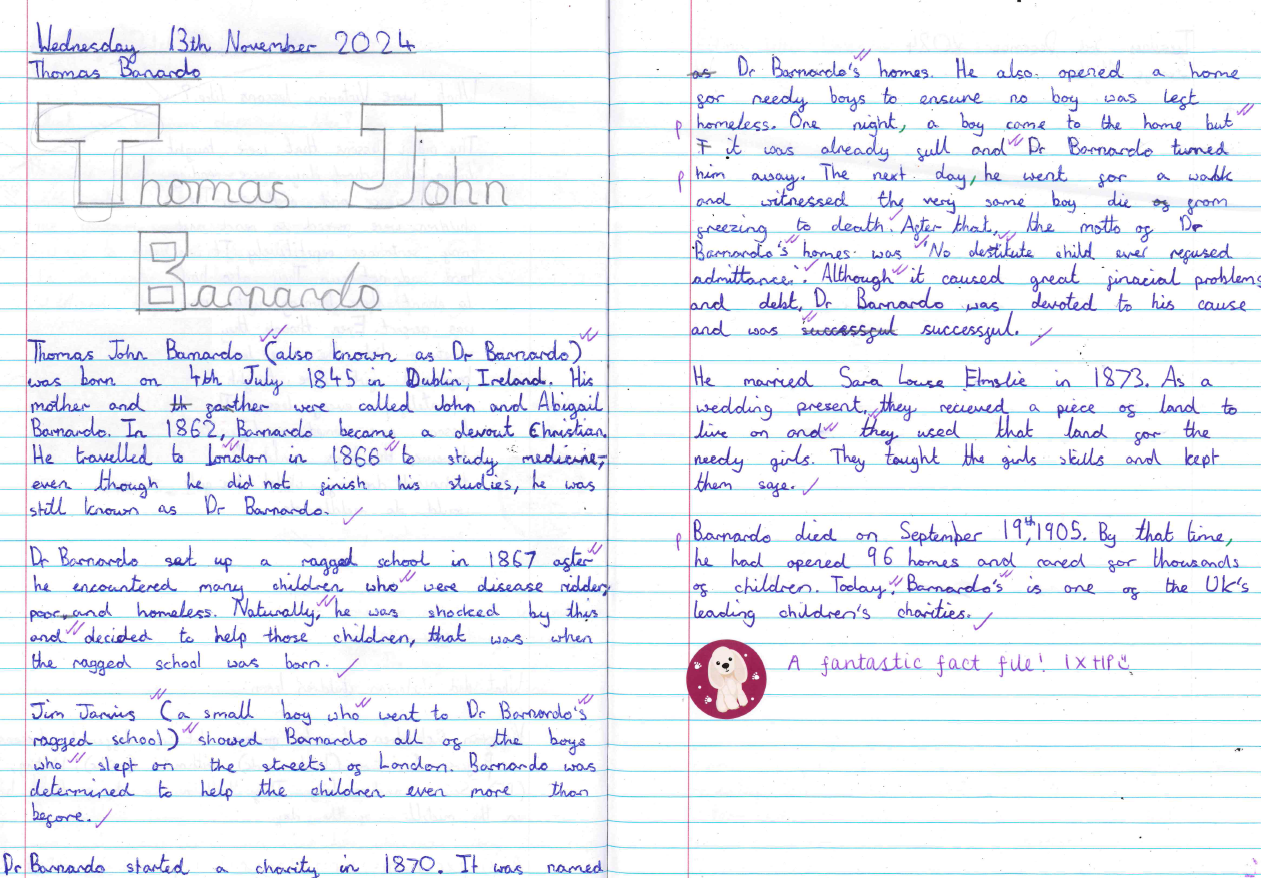 Wednesday 13th November 2024
Thomas Banardo
Thomas John
Barnardo
Thomas John Barnardo (also known as Dr Barnardo)
was born on 4th July 1845 in Dublin, Ireland. His
mother and father were called John and Abigail
Barnardo. In 1862, Barnardo became a devout Christian.
He travelled to London in 1866 to study medicine,
even though he did not finish his studies, he was
still known as Dr Barnardo.
Dr Barnardo set up a ragged school in 1867 after
he encountered many children who were disease ridden,
poor, and homeless. Naturally, he was shocked by this
and decided to help those children, that was when
the ragged school was born.
Jim Jarvis (a small boy who went to Dr Barnardo's
ragged school) showed Barnardo all of the boys
who slept on the streets of London. Barnardo was
determined to help the children even more than
before.
Dr Barnardo started a charity in 1870. It was named
as Dr Barnardo's homes. He also opened a home
for needy boys to ensure no boy was left
p homeless. One night, a boy came to the home but
it was already full and Dr Barnardo turned
p him away. The next day, he went for a walk
and witnessed the very same boy die from
freezing to death. After that, the motto of Dr
Barnardo's homes was "No destitute child ever refused
admittance." Although it caused great finacial problems
and debt, Dr Barnardo was devoted to his cause
and was successful successful.
He married Sara Louse Elmslie in 1873. As a
wedding present, they recieved a piece of land to
live on and they used that land for the
needy girls. They taught the girls skills and kept
them safe.
p Barnardo died on September 19th, 1905. By that time,
he had opened 96 homes and cared for thousands
of children. Today, Barnardo's is one of the UK's
leading children's charities.
A fantastic fact file! 1 x HP